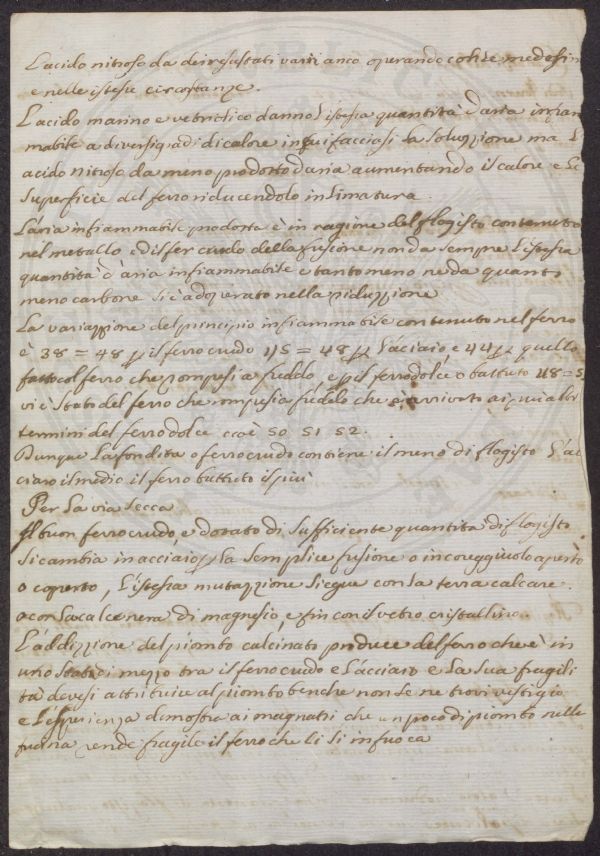 L'acido nitroso da dei resultati varii anco operando colli se medesim
e nelle istesse circostanze.
L'acido marino e vetriolico danno l'istessa quantità d'aria infiam
mabile a diversi gradi di calore in cui facciasi la soluzione ma l'
acido nitroso da meno prodotto d'aria aumentando il calore e la
superficie del ferro riducendolo in limatura.
L'aria infiammabile prodotta è in ragione del flogisto contenuto
nel metallo, e di ferro crudo della fusione non da sempre l'istessa
quantità d'aria infiammabile e tanto meno ne da quanto
meno carbone si è adoperato nella riduzzione
La variazzione del principio infiammabile contenuto nel ferro
è 38 = 48 p il ferro crudo 45 = 48 p l'acciaio, e 44 p quello
fatto col ferro che rompesi a freddo, e p il ferro dolce, o battuto 48 = 5
vi è stato del ferro che rompesi a freddo che è arrivato ai
termini del ferro dolce cioè 50 51 52.
Dunque la fondita o ferro crudo contiene il meno di flogisto l'ac
ciaro il medio il ferro battuto il più
Per la via secca
Il buon ferro crudo, e dotato di sufficiente quantità di flogisto
si cambia in acciaio p la semplice fusione o in coreggiuolo aperto
o coperto, l'istessa mutazzione siegue con la terra calcare
o con la calce nera di magnesio, e fin con il vetro cristallino.
L'addizzione del piombo calcinato produce del ferro che è in
uno stato di mezzo tra il ferro crudo e l'acciaio e la sua fragili
tà devesi attribuire al piombo benche non se ne trovi vestigio
e l'esperienza dimostra ai magnani che un poco di piombo nella
fucina rende fragile il ferro che li si infuoca